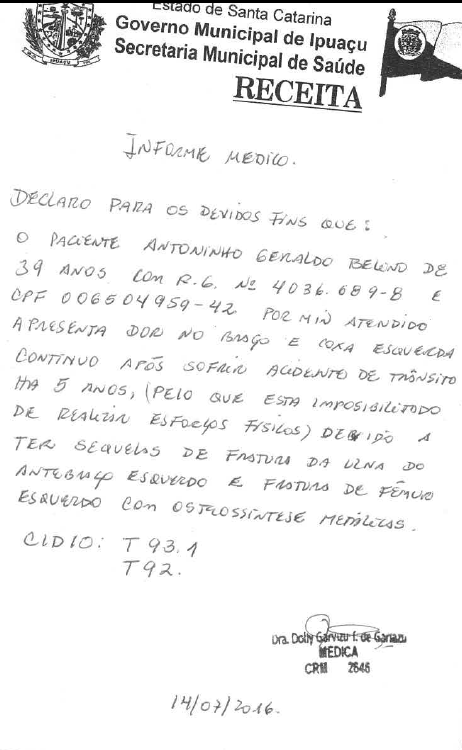 Estado de Santa Catarina
Governo Municipal de Ipuaçu
Secretaria Municipal de Saúde
RECEITA
IPUAÇU
INFORME MEDICO.
DECLARO PARA OS DEVIDOS FINS QUE:
O PACIENTE ANTONINHO GERALDO BELINO DE
39 ANOS COM R.G. Nº 4036.689-8 E
CPF 006504959-42 POR MIN ATENDIDO
APRESENTA DOR NO BRAÇO E COXA ESQUERDA
CONTINUO APÓS SOFRIR ACIDENTE DE TRÂNSITO
HA 5 ANOS, (PELO QUE ESTA IMPOSIBILITADO
DE REALIZAR ESFORÇOS FÍSICOS) DEBIDO A
TER SEQUELAS DE FRATURA DA ULNA DO
ANTEBRAÇO ESQUERDO E FRATURA DE FÊMUR
ESQUERDO COM OSTEOSSÍNTESE METÁLICAS.
CID10: T 93.1
T92.
Dra. Dolly Garvizu f. de
MEDICA
CRM 2646
14/07/2016.